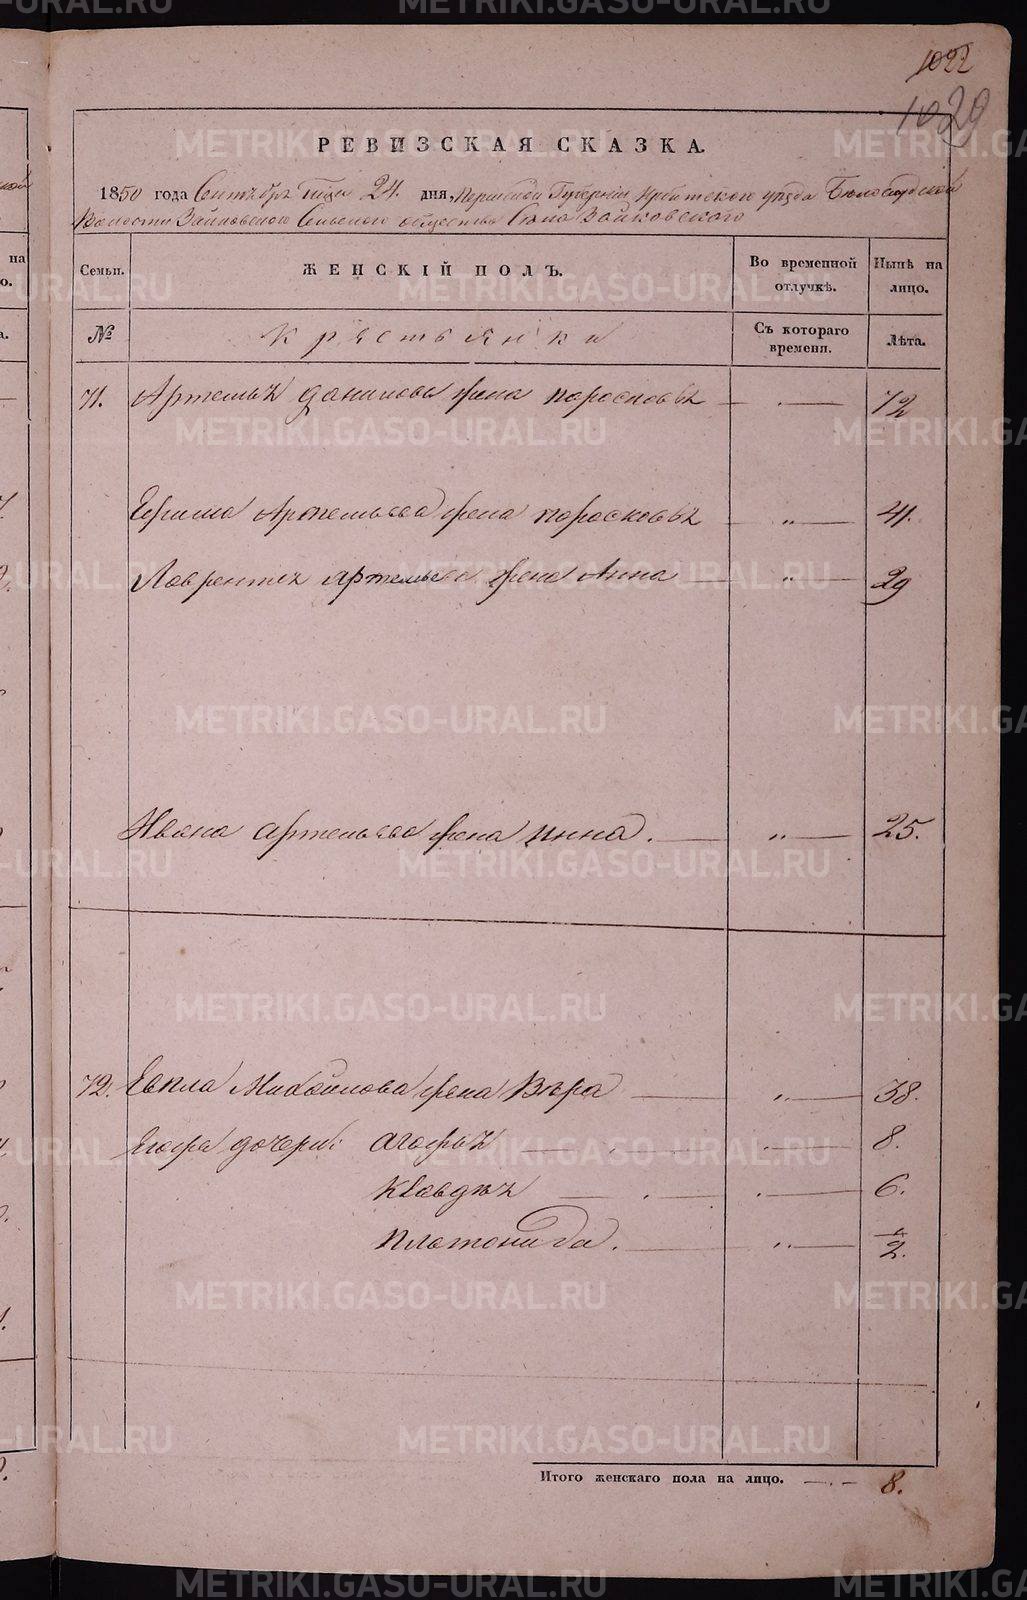 1022
1029
РЕВИЗСКАЯ СКАЗКА.
1850 года Сентебре месяца 24. дня, Пермской Губернии Ирбитского уезда Белослудской
Волости Зайковского Сельского общества Села Зайковского
Семьи. ЖЕНСКІЙ ПОЛЪ. Во временной отлучкѣ. Нынѣ на лицо.
№ Крестьянки Съ котораго времени. Лѣта.
71. Артемья Данилова жена Поросковья — 72
Ефима Артемьева жена Поросковья — „ — 41.
Лаврентья Артемьева жена Анна — „ — 29
Ивана Артемьева жена Инна. — „ — 25.
72. Евпла Михайлова жена Вѣра — „ — 38.
дочери: Агофья — 8.
Клавдѣя — 6.
Платонида. — „ — 1/2.
Итого женскаго пола на лицо. — . — 8.
METRIKI.GASO-URAL.RU